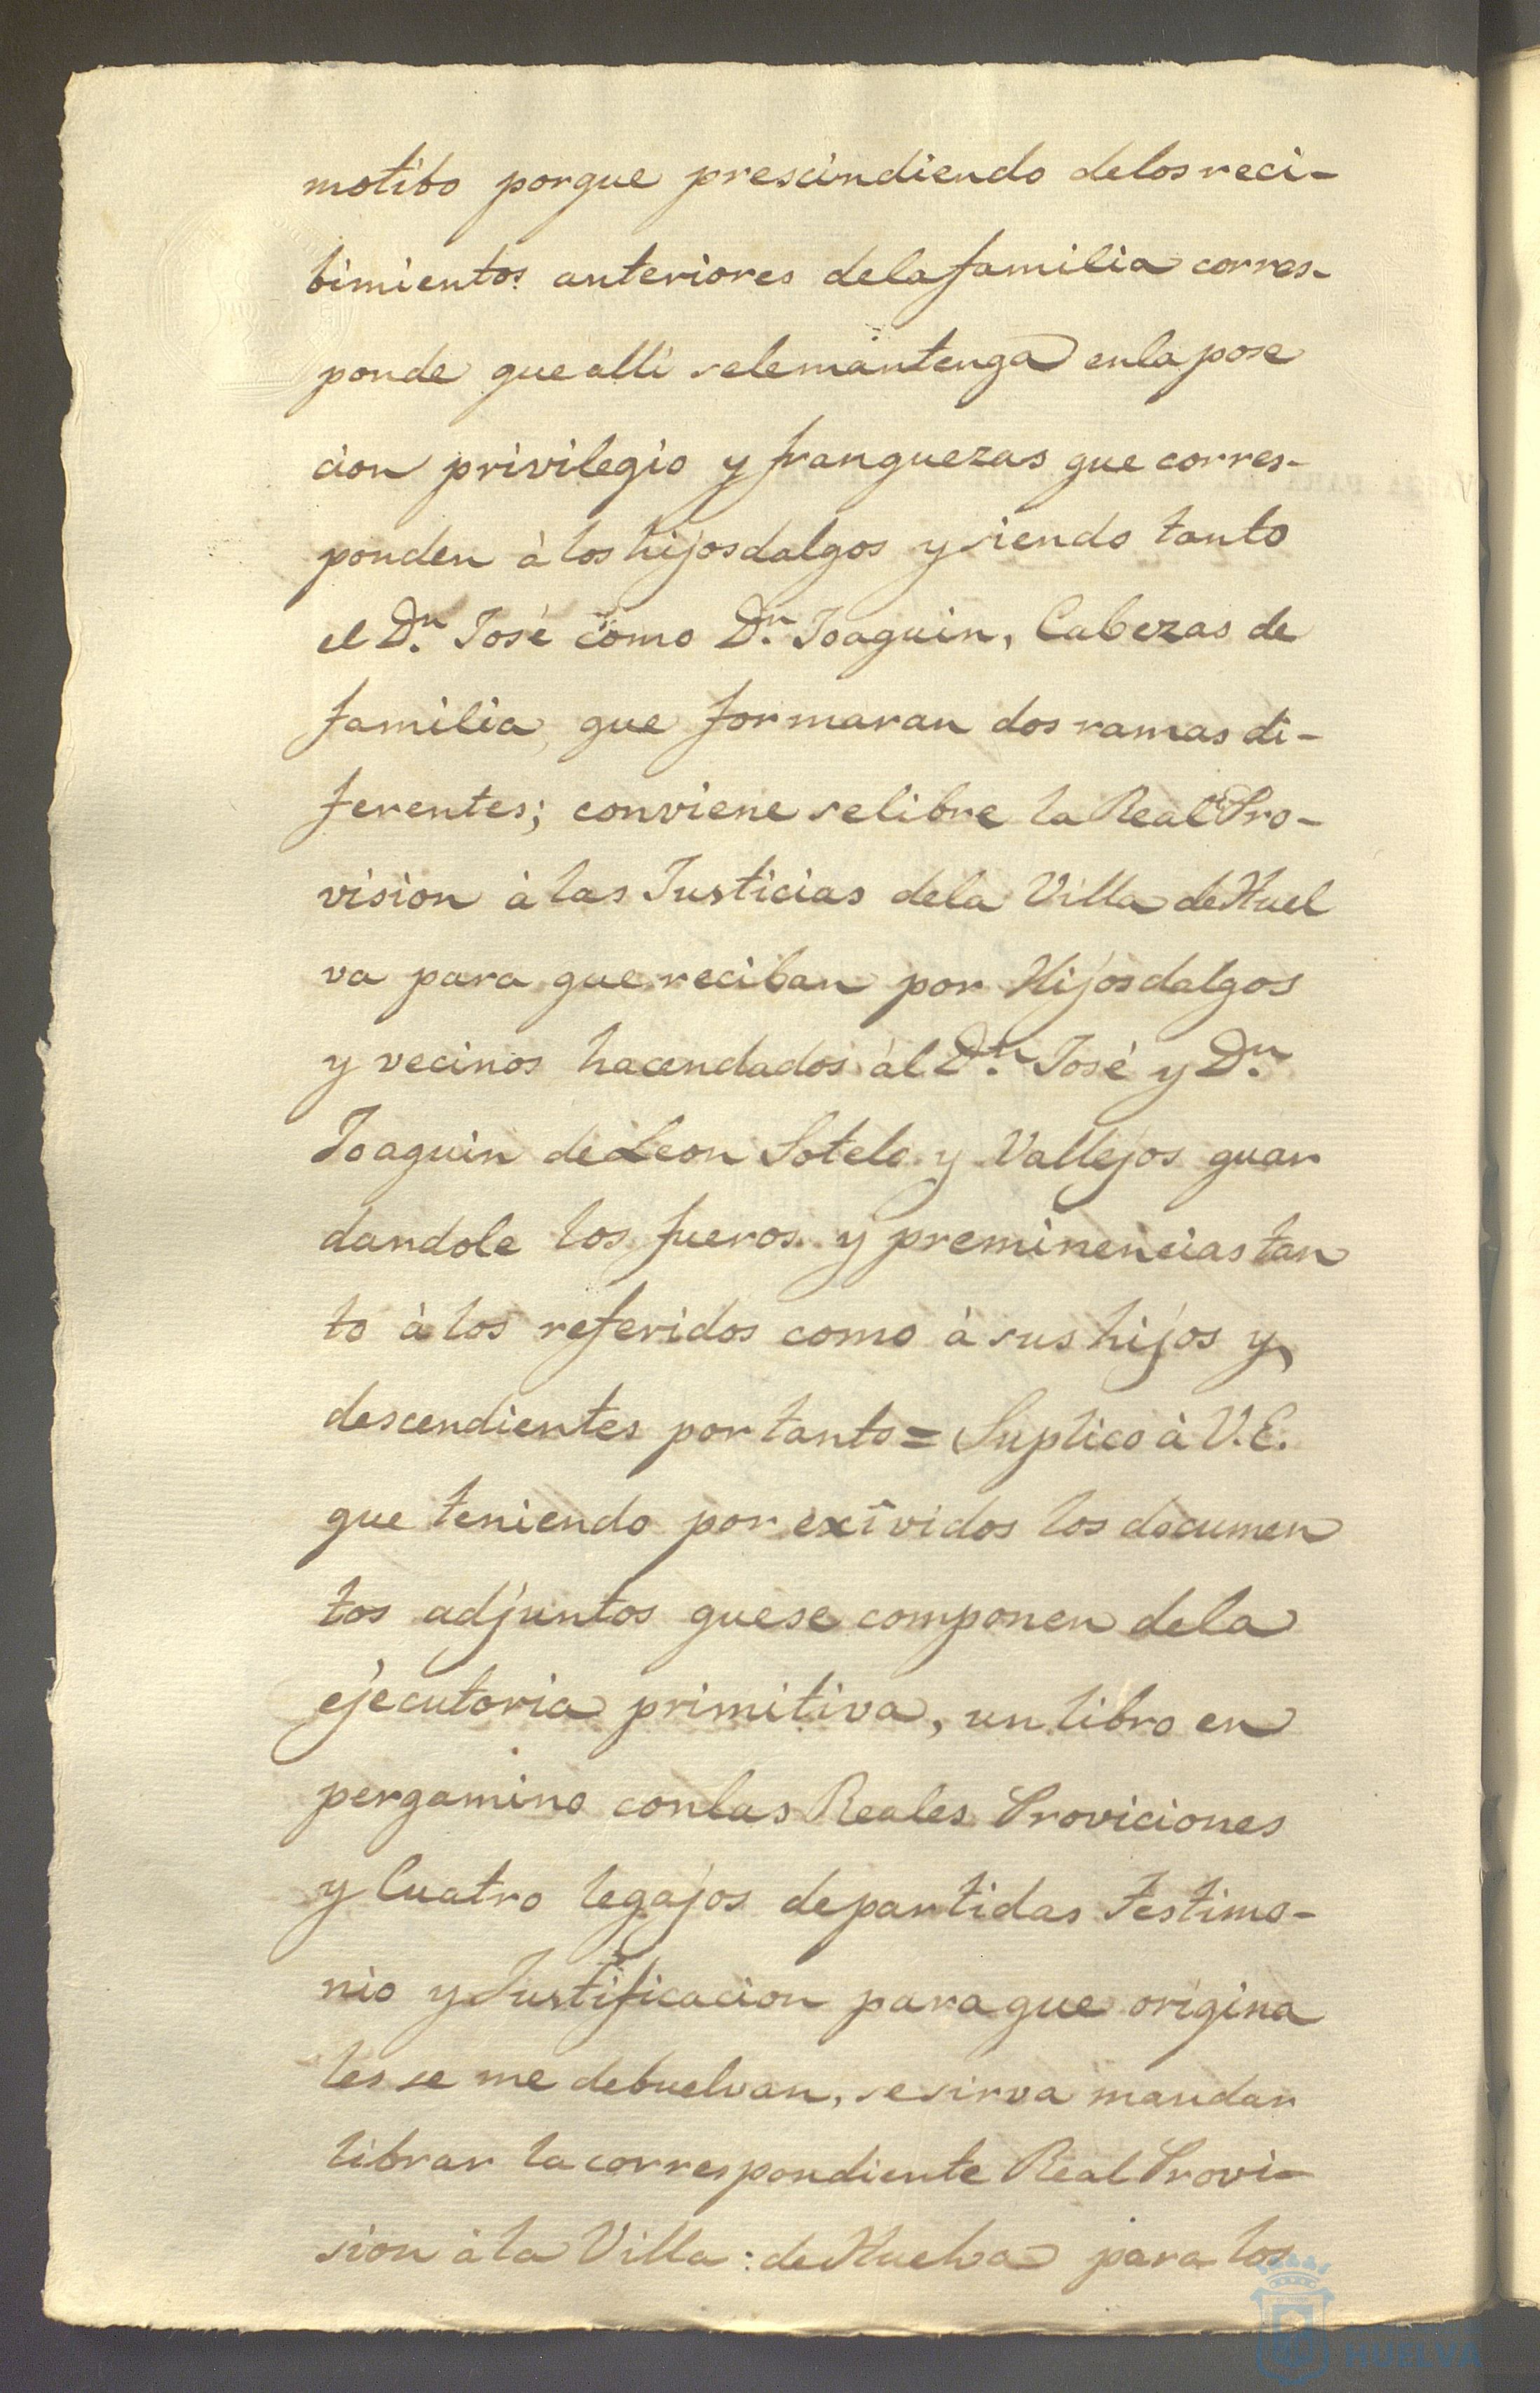 motibo porque prescindiendo delos reci-
bimientos anteriores dela familia corres-
ponde que alli selemantenga enla pose
cion privilegio y franquezas que corres-
ponden à los hijosdalgos y siendo tanto
el Dn. José como Dn. Joaquin, Cabezas de
familia, que formaran dos ramas di-
ferentes; conviene selibre la Real Pro-
vision à las Justicias dela Villa de Huel
va para que reciban por Hijosdalgos
y vecinos hacendados àl Dn. José y Dn.
Joaquin de Leon Sotelo y Vallejos guar
dandole los fueros y preminencias tan
to à los referidos como à sus hijos y
descendientes por tanto = Suplico à V.E.
que teniendo por exividos los documen
tos adjuntos quese componen dela
ejecutoria primitiva, un libro en
pergamino conlas Reales Proviciones
y Cuatro legajos departidas Testimo-
nio y Justificacion paraque origina
les se me debuelvan, sesirva mandar
librar la correspondiente Real Provi-
sion àla Villa: de Huelva para los
HUELVA